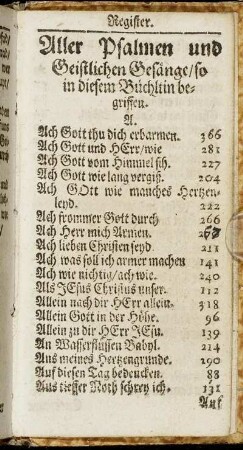 Register.
Aller Psalmen und
Geistlichen Gesänge/so
in diesem Büchltin be-
griffen.
A.
Ach Gott thu dich erbarmen. 366
Ach Gott und HErr/wie 281
Ach Gott vom Himmel sih. 227
Ach Gott wie lang vergiß. 204
Ach GOtt wie manches Hertzen-
leyd. 222
Ach frommer Gott durch 266
Ach Herr mich Armen.
Ach lieben Christen seyd. 211
Ach was soll ich armer machen 141
Ach wie nichtig/ach/wie. 240
Als JEsus Christus unser. 112
Allein nach dir HErr allein. 318
Allein Gott in der Höhe. 96
Allein zu dir HErr JEsu. 139
An Wasserflüssen Babyl. 214
Aus meines Hertzengrunde. 290
Auf diesen Tag bedencken. 88
Aus tieffer Noth schrey ich. 131
Auf